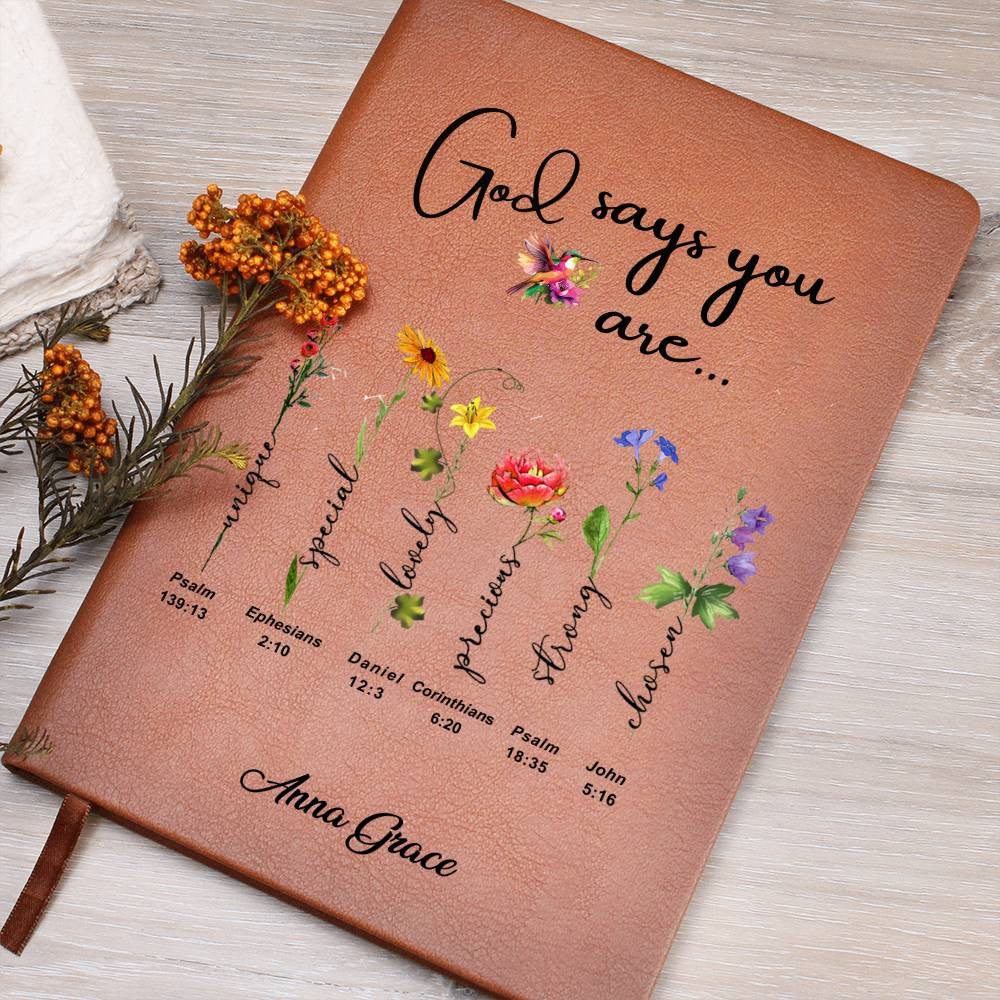 God says you
are...
unique
special
lovely
precious
strong
chosen
Psalm
139:13
Ephesians
2:10
Daniel
12:3
Corinthians
6:20
Psalm
18:35
John
5:16
Anna Grace